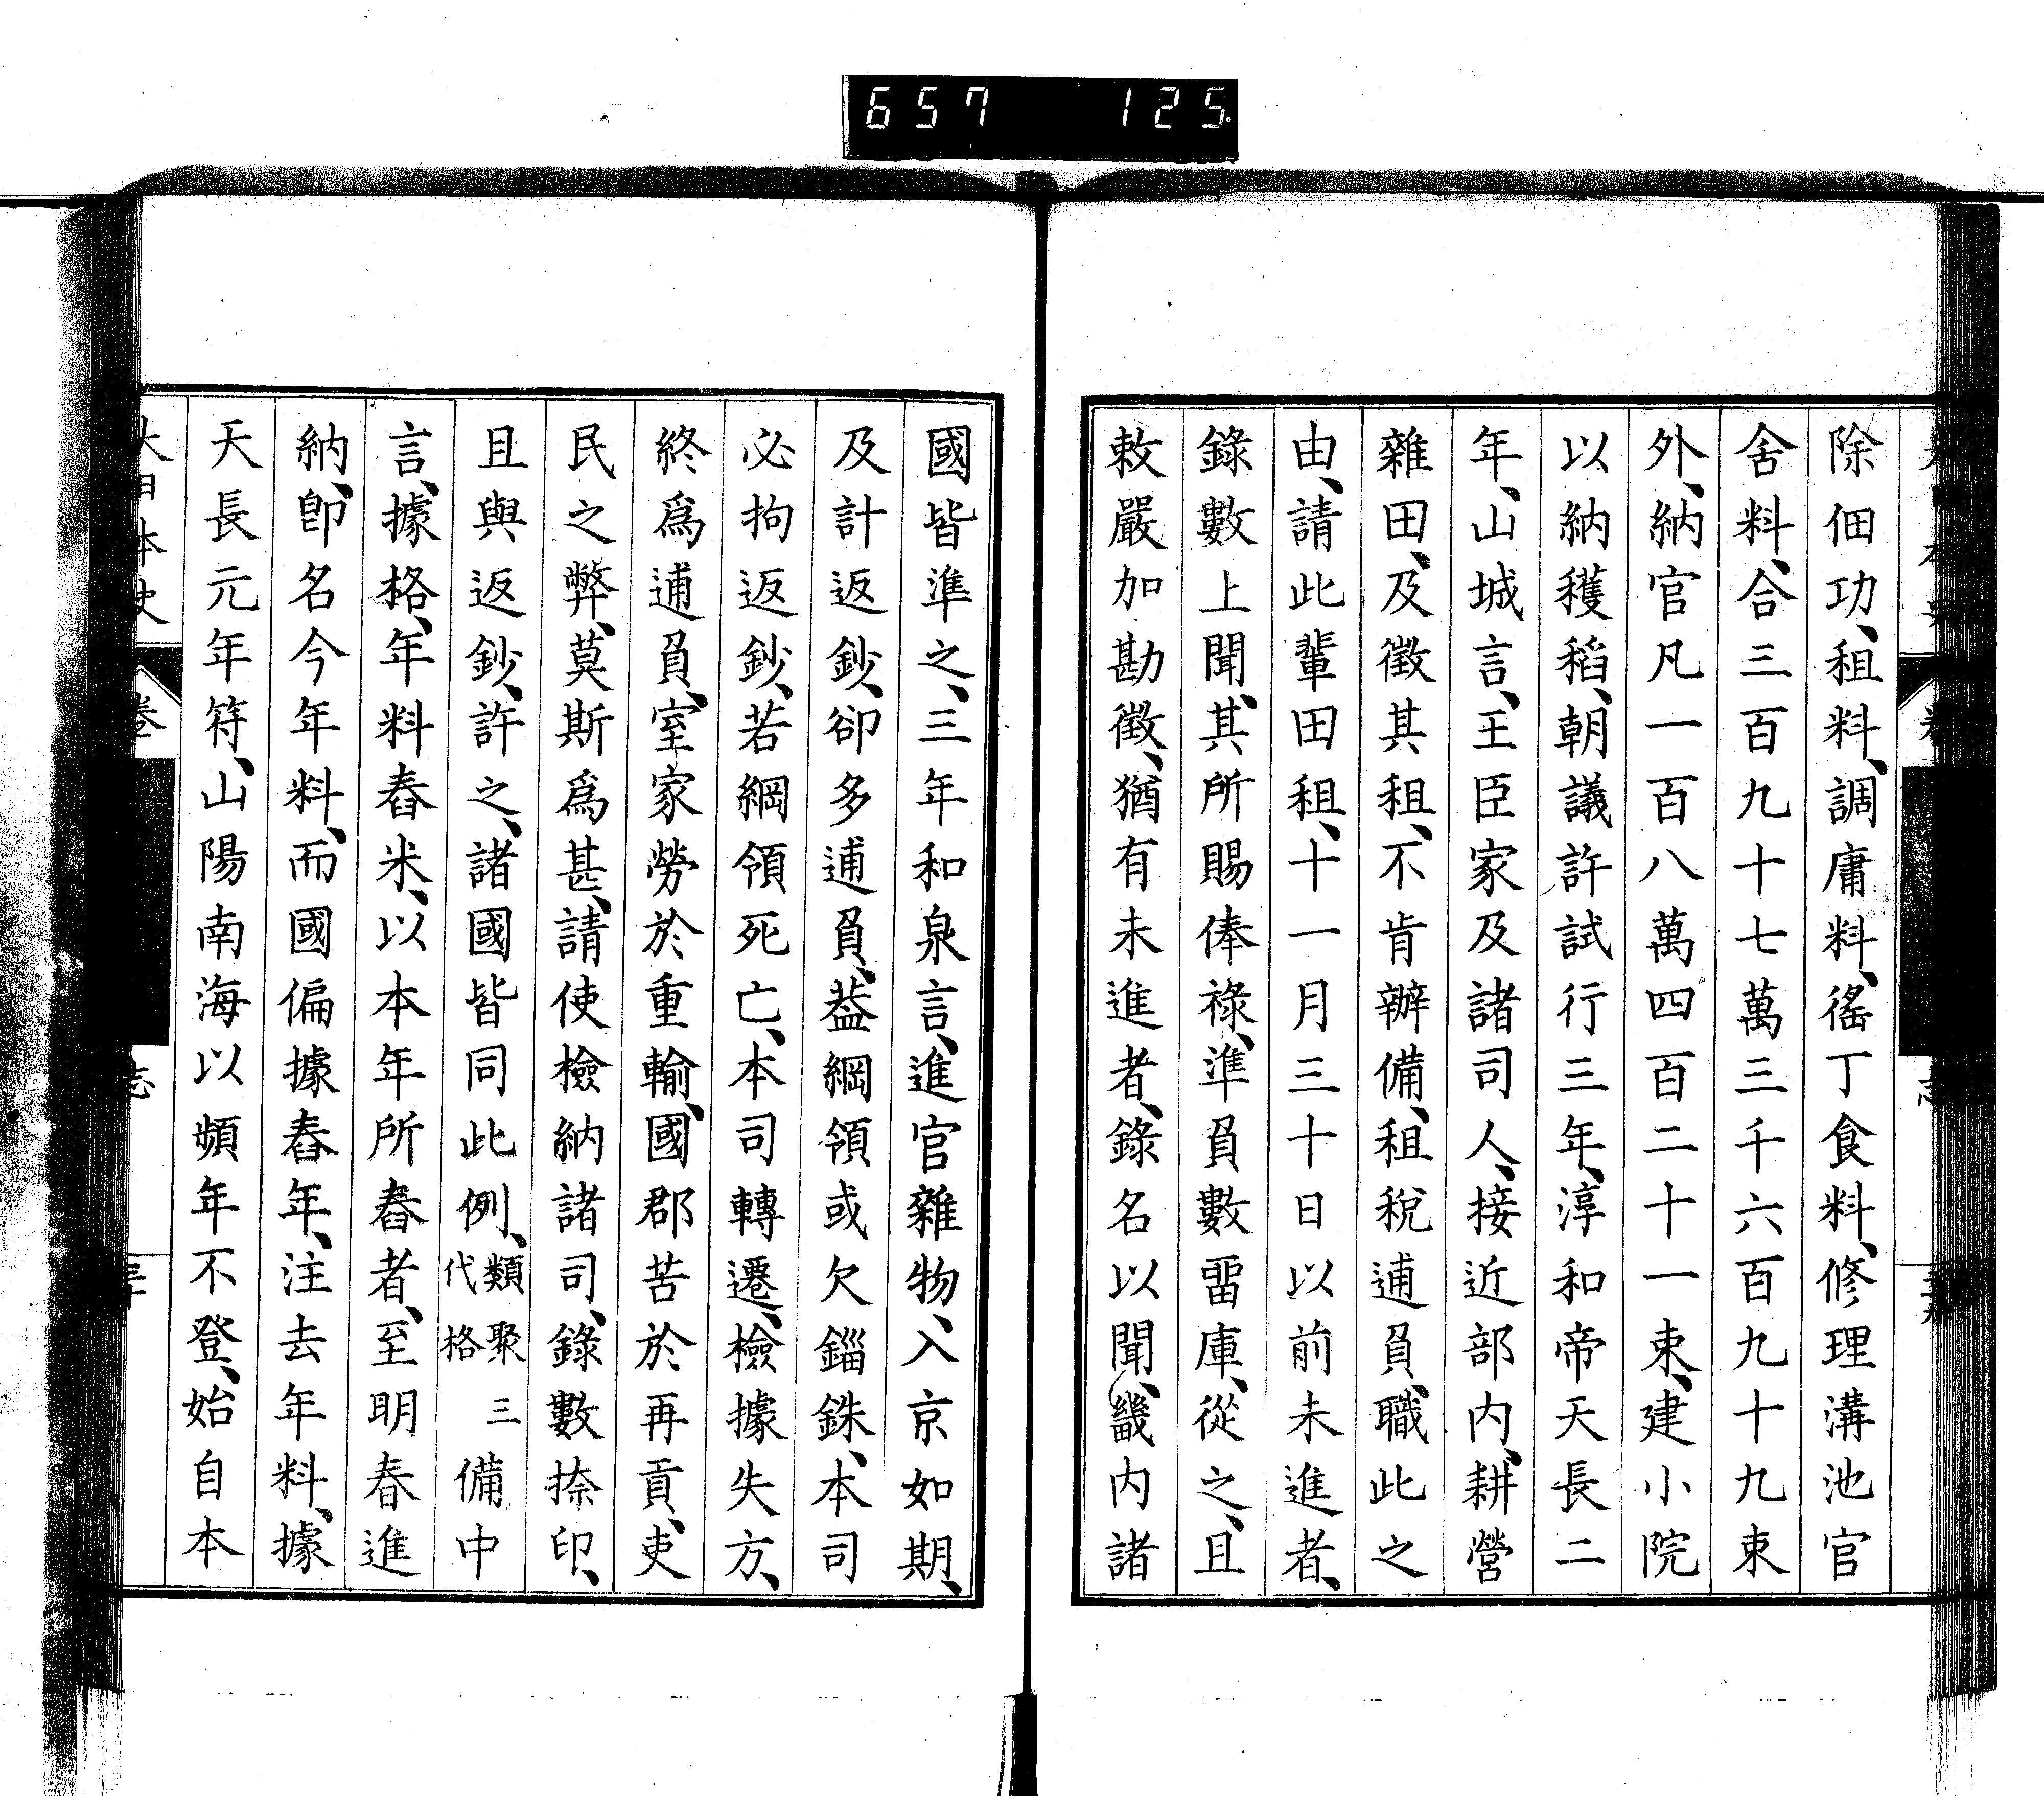 657 125
除佃功、租料、調庸料、徭丁食料、修理溝池官
舍料、合三百九十七萬三千六百九十九束
外、納官凡一百八萬四百二十一束、建小院
以納穫稻、朝議許試行三年、淳和帝天長二
年、山城言、王臣家及諸司人、接近部内、耕營
雜田、及徵其租、不肯辦備、租稅逋負、職此之
由、請此輩田租、十一月三十日以前未進者、
錄數上聞、其所賜俸祿、準負數畱庫、從之、且
敕嚴加勘徵、猶有未進者、錄名以聞、畿内諸
國皆準之、三年和泉言、進官雜物、入京如期、
及計返鈔、卻多逋負、葢綱領或欠錙銖、本司
必拘返鈔、若綱領死亡、本司轉遷、檢據失方、
終爲逋負、室家勞於重輸、國郡苦於再貢、吏
民之弊、莫斯爲甚、請使檢納諸司、錄數捺印、
且與返鈔、許之、諸國皆同此例、類聚三代格 備中
言、據格、年料舂米、以本年所舂者、至明春進
納、卽名今年料、而國偏據舂年、注去年料、據
天長元年符、山陽南海以頻年不登、始自本
大日本史 卷 志